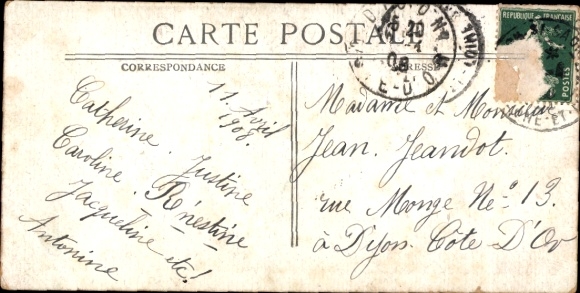 CARTE POSTALE
CORRESPONDANCE
ADRESSE
11 Avril
1908.
Catherine. Justine
Caroline. Rénestine
Jacqueline etc!
Antonine
Madame et Monsieur
Jean Jeandot.
rue Monge No 13.
à Dijon Côte D'Or
REPUBLIQUE FRANÇAISE
POSTES
CÔTE-D'OR
08